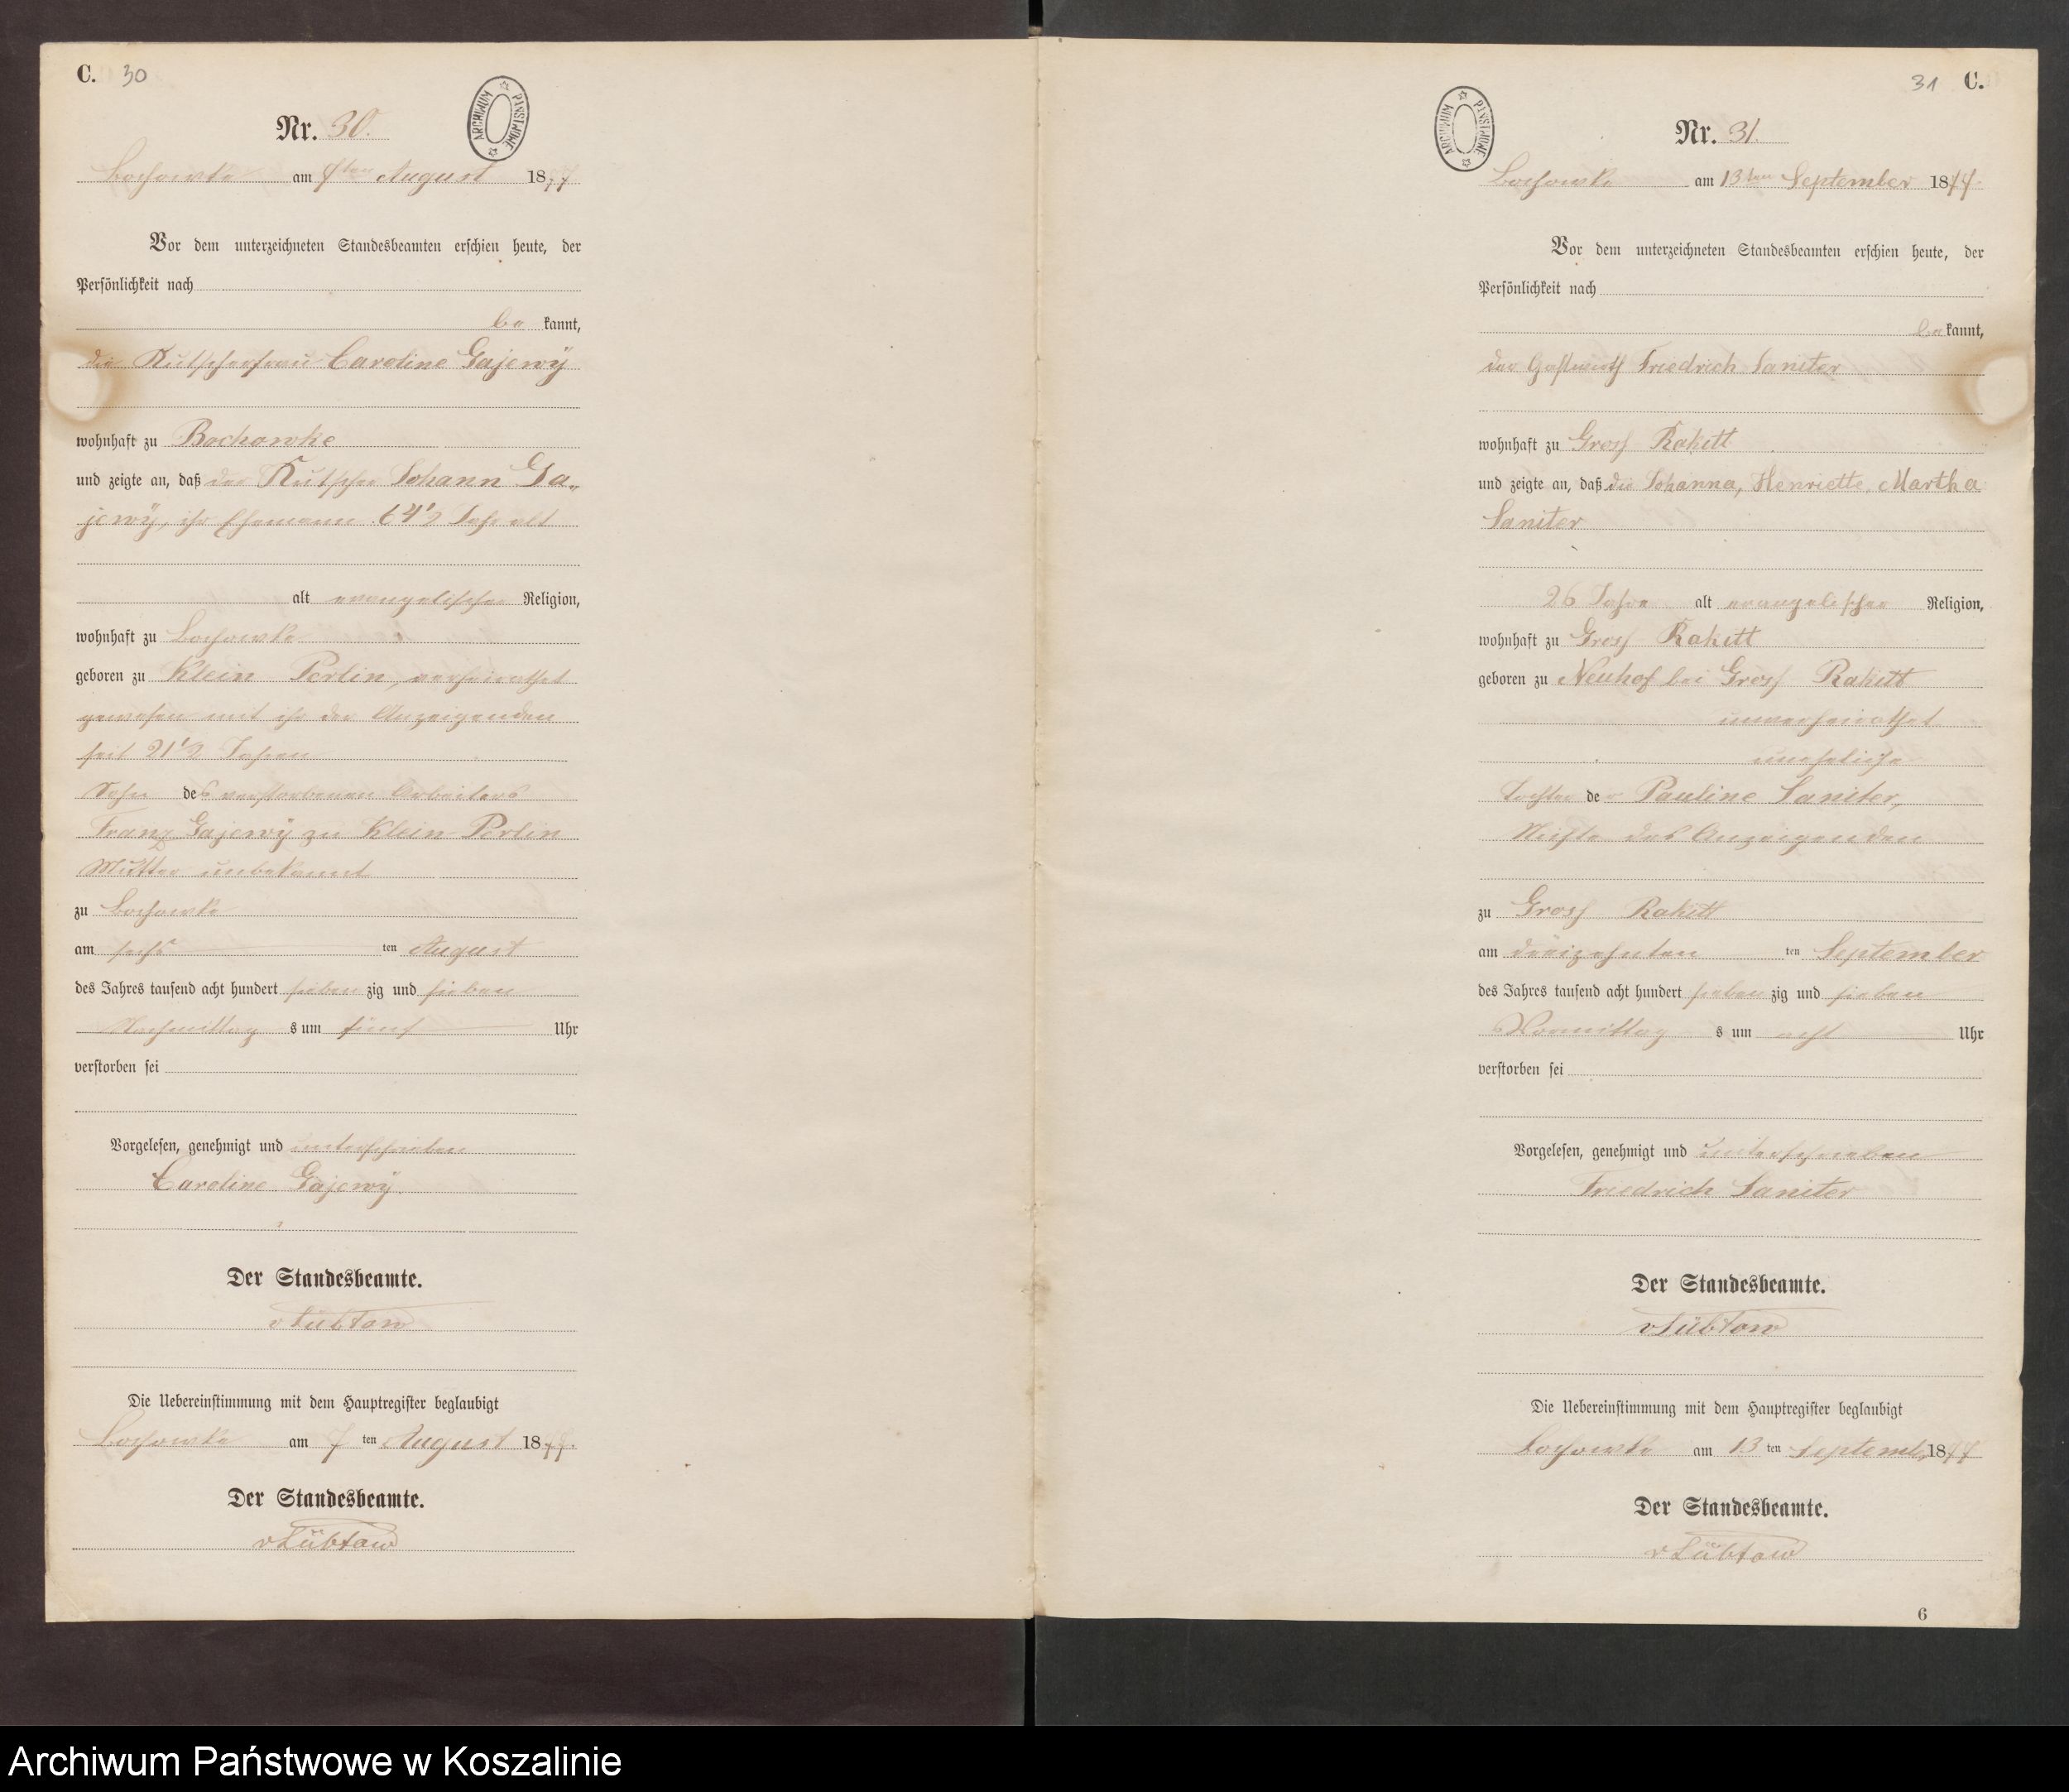 C. 30
ARCHIWUM PAŃSTWOWE
Nr. 30.
Bochowke am 7ten August 1877
Vor dem unterzeichneten Standesbeamten erschien heute, der
Persönlichkeit nach
be kannt,
die Kutscherfrau Caroline Gajewÿ
wohnhaft zu Bochowke
und zeigte an, daß der Kutscher Johann Ga„
jewÿ, ihr Ehemann 64 1/2 Jahr alt
alt evangelischer Religion,
wohnhaft zu Bochowke
geboren zu Klein Perlin, verheirathet
gewesen mit ihr der Anzeigenden
seit 21 1/2 Jahren
Sohn des verstorbenen Arbeiters
Franz Gajewÿ zu Klein-Perlin
Mutter unbekannt
zu Bochowke
am sechs ten August
des Jahres tausend acht hundert sieben zig und sieben
Nachmittag s um fünf Uhr
verstorben sei
Vorgelesen, genehmigt und unterschrieben
Caroline Gajewÿ
Der Standesbeamte.
vLübtow
Die Uebereinstimmung mit dem Hauptregister beglaubigt
Bochowke am 7 ten August 1877.
Der Standesbeamte.
vLübtow
31 C.
ARCHIWUM PAŃSTWOWE
Nr. 31.
Bochowke am 13ten September 1877.
Vor dem unterzeichneten Standesbeamten erschien heute, der
Persönlichkeit nach
be kannt,
der Gastwirth Friedrich Saniter
wohnhaft zu Gross Rakitt
und zeigte an, daß die Johanna, Henriette, Martha
Saniter
26 Jahre alt evangelischer Religion,
wohnhaft zu Gross Rakitt
geboren zu Neuhof bei Gross Rakitt
unverheirathet
uneheliche
Tochter der Pauline Saniter,
Nichte des Anzeigenden
zu Gross Rakitt
am dreizehnten ten September
des Jahres tausend acht hundert sieben zig und sieben
Vormittag s um acht Uhr
verstorben sei
Vorgelesen, genehmigt und unterschrieben
Friedrich Saniter
Der Standesbeamte.
vLübtow
Die Uebereinstimmung mit dem Hauptregister beglaubigt
Bochowke am 13 ten Septemb. 1877
Der Standesbeamte.
vLübtow
6
Archiwum Państwowe w Koszalinie